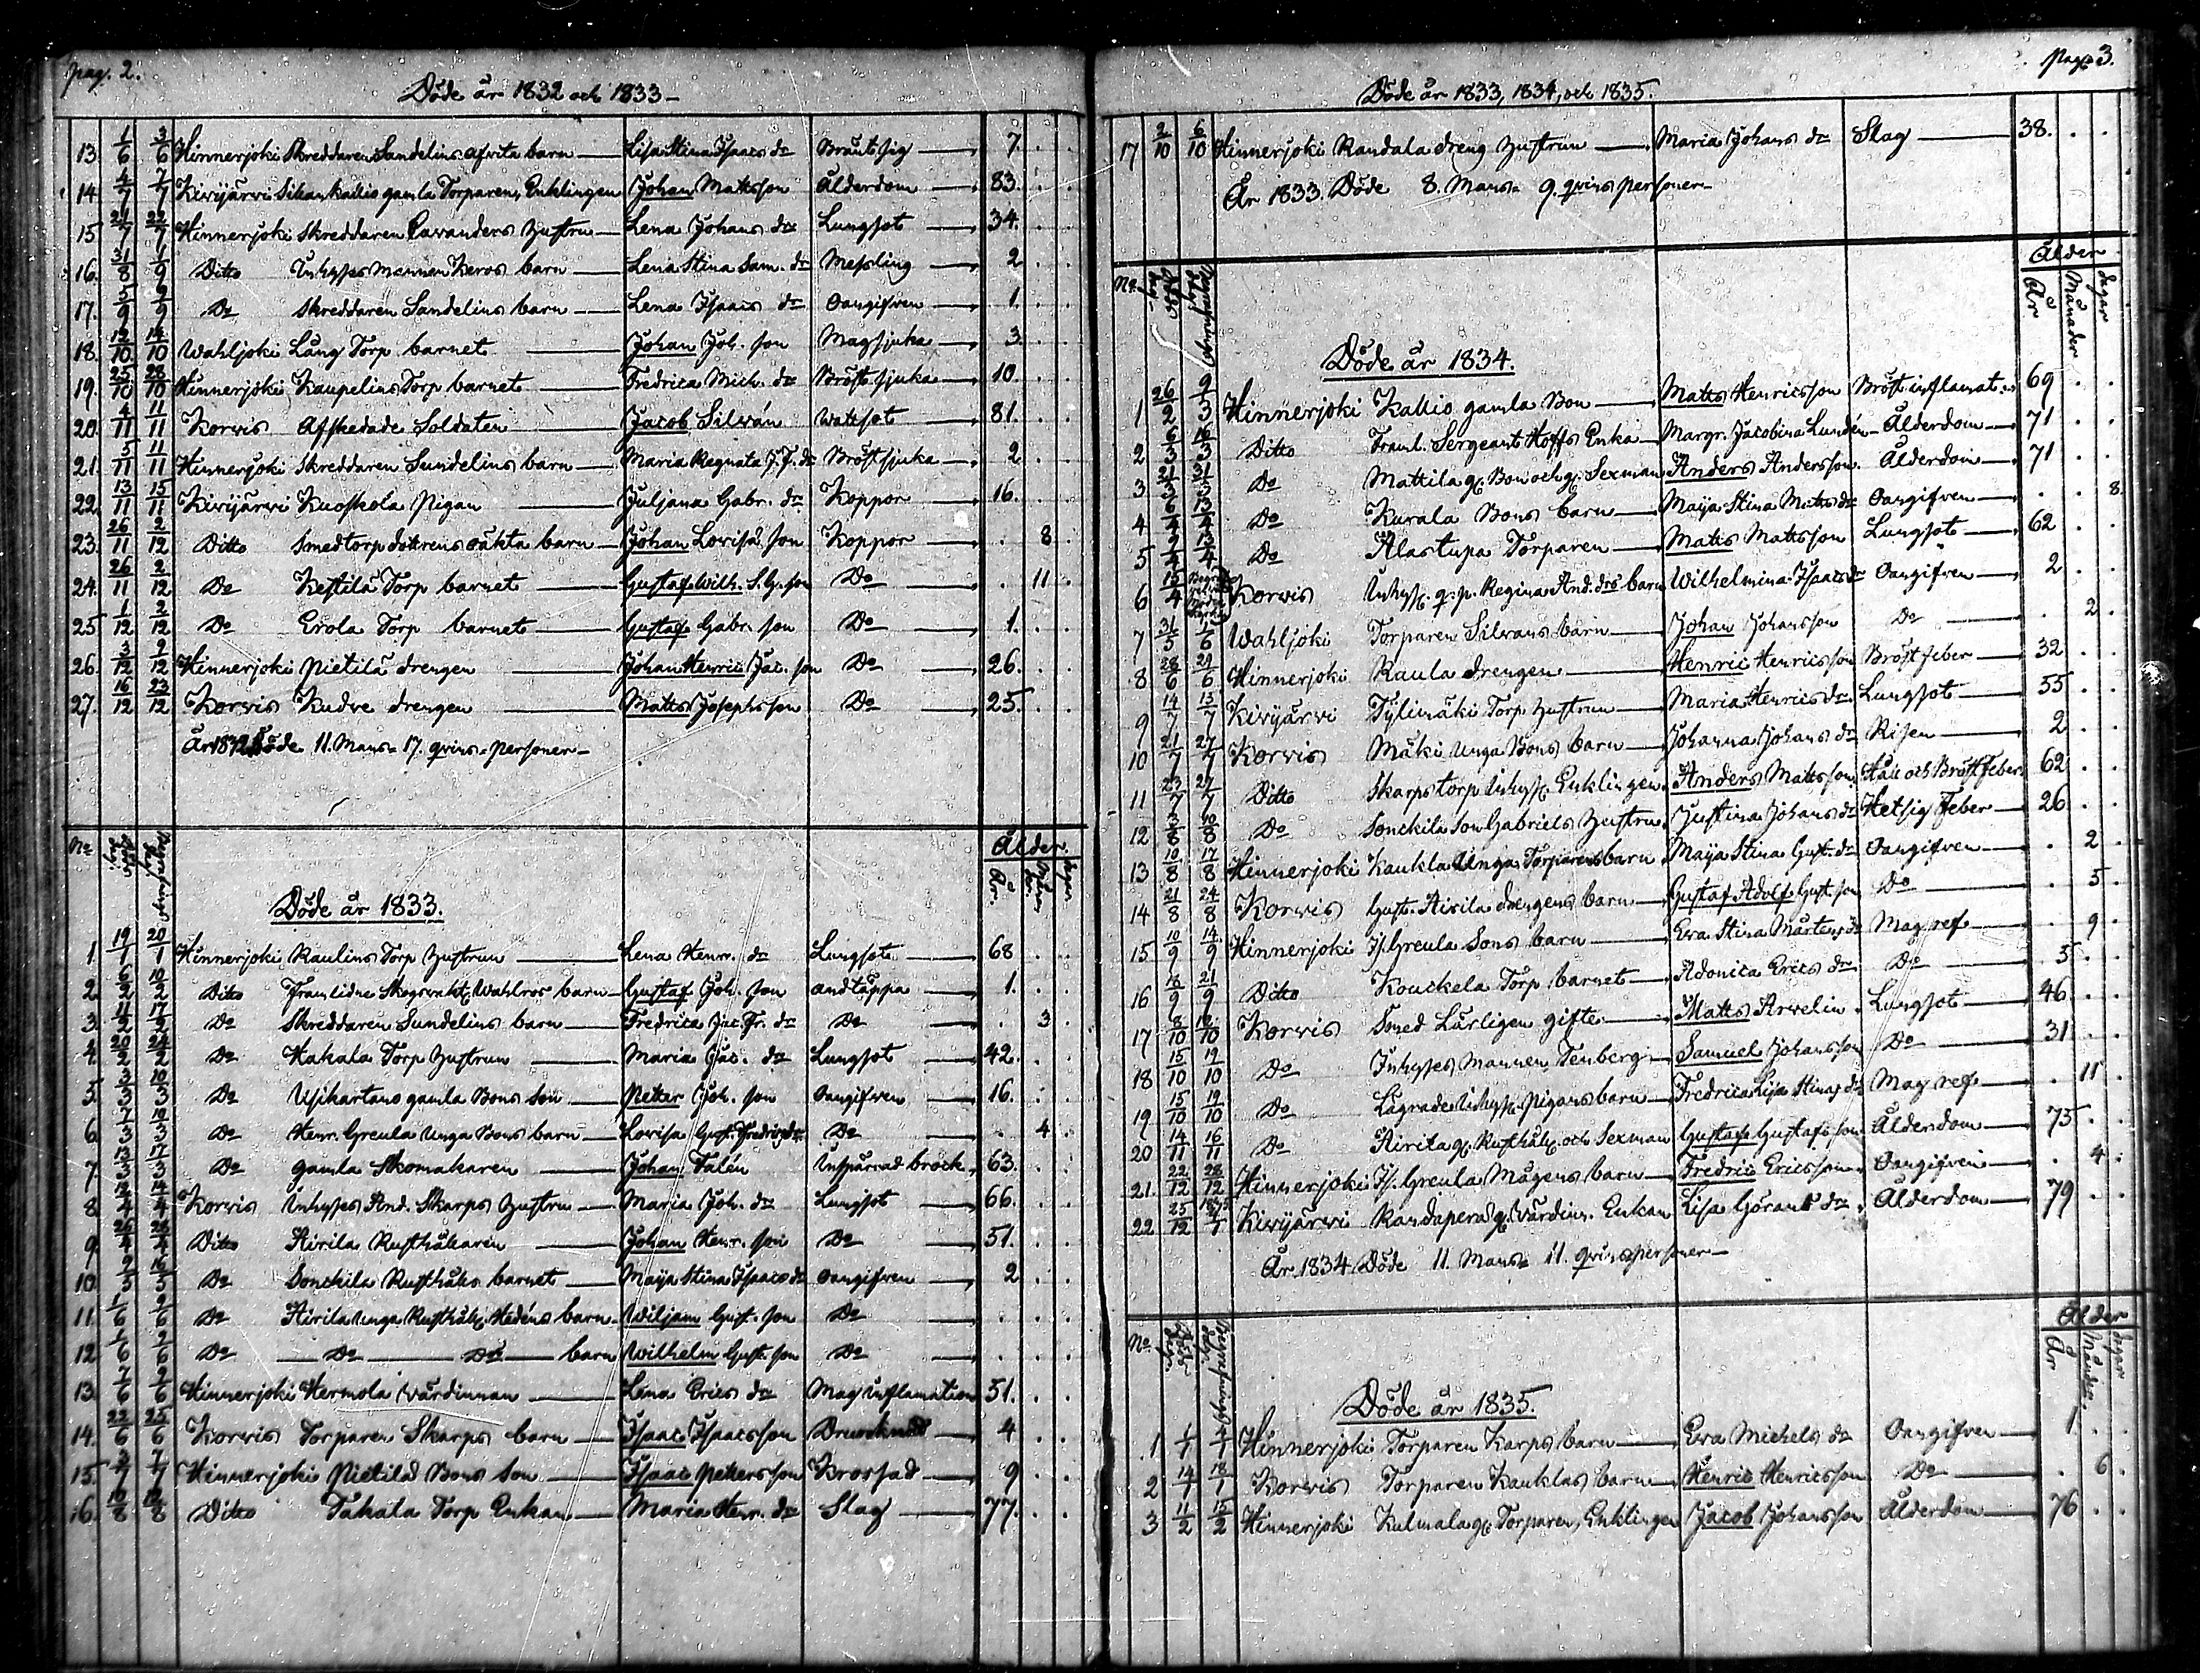 pag. 2.
Döde år 1832 och 1833
13 1/6 3/6 Hinnerjoki Skreddaren Sandelins barn Lisa Stina Isaacs dr 7
14 4/7 7/7 Kiwijärwi kallio gamla Torparen, Enklingen Johan Mattsson Ålderdom 83.
15 21/7 22/7 Hinnerjoki Skreddaren Lavanders hustru Lena Johans dr Lungsot 34.
16. 31/8 1/9 Ditto Inhyses Mannen Keros barn Lena Stina Sam. dr Messling 2
17. 5/9 9/9 Do Skreddaren Sandelins barn Lena Isaacs dr Oangifven 1.
18. 12/10 14/10 Wahljoki Lång Torp barnet Johan Joh. son Magsjuka 3.
19. 25/10 28/10 Hinnerjoki Kaupelins Torp barnet Fredrica Mich. dr Bröst sjuka 10.
20. 4/11 11/11 Korvis Afskedade Soldaten Jacob Silwán Watsot 81.
21. 5/11 11/11 Hinnerjoki Skreddaren Sundelins barn Maria Regnata J.F. dr Bröstsjuka 2
22. 13/11 15/11 Kiwijärwi Kuoskola Pigan Juljana Gabr. dr Koppor 16.
23. 26/11 2/12 Ditto Smedtorp dottrens oäkta barn Johan Lovisæ son Koppor 8
24. 26/11 2/12 Do Kestilä Torp barnet Gustaf Wilh. S.G. son Do 11
25 1/12 2/12 Do Erola Torp barnet Gustaf Gabr. son Do 1.
26. 3/12 9/12 Hinnerjoki Pietilä drengen Johan Henric Jac. son Do 26.
27. 16/12 23/12 Korvis Kudve drengen Matts Josephsson Do 25.
År 1832 Döde 11. Mans- 17. qvins-personer
No Ålder
År.
Döde år 1833.
1. 19/1 20/1 Hinnerjoki Raulins Torp hustrun Lena Henr. dr Lungsot 68
2. 6/2 10/2 Ditto Framlidne Skogsvakt. Wahlros barn Gustaf Joh. son andtäppa 1.
3. 11/2 17/2 Do Skreddaren Sundelins barn Fredrica Jac. Fr. dr Do 3
4. 20/2 24/2 Do Hakala Torp hustrun Maria Jac. dr Lungsot 42.
5. 3/3 10/3 Do Usikartano gamla Bons son Petter Joh. son Oangifven 16.
6. 7/3 10/3 Do Henr. Greula unga Bons barn Lovisa Gust. Fredrics dr Do 4
7 13/3 17/3 Do gamla Skomakaren Johan Talén Inspärrad bråck 63.
8 12/4 14/4 Korvis Inhyses And. Skarps hustru Maria Joh. dr Lungsot 66.
9. 25/4 28/4 Ditto Airila Rusthållaren Johan Henr. son Do 51.
10 9/5 16/5 Do Sonckila Rusthålls barnet Maija Stina Isaacs dr Oangifven 2
11. 1/6 9/6 Do Airila unga Rusthåll. Hedéns barn Wiljam Gust. son Do
12 1/6 9/6 Do Do Do barn Wilhelm Gust. son Do
13. 7/6 9/6 Hinnerjoki Hermola wärdinnan Lena Erics dr Mag inflamation 51.
14. 22/6 25/6 Korvis Torparen Skarps barn Isaac Isaacsson Drunknad 4
15. 3/7 7/7 Hinnerjoki Pietilä Bons son Isaac Pettersson Krossad 9
16. 10/8 12/8 Ditto Takala Torp Enkan Maria Henr. dr Slag 77.
pag. 3.
Döde år 1833, 1834, och 1835.
17 2/10 6/10 Hinnerjoki Randala dreng hustrun Maria Johans dr Slag 38.
År 1833. Döde 8. Mans- 9. qvins personer
No. Ålder
År Månader dagar
Döde år 1834.
1 26/2 2/3 Hinnerjoki Kallio gamla Bon Matts Henricsson Bröst inflamat. 69
2 6/3 16/3 Ditto Framl. Sergeant Hoffs Enka Margr. Jacobina Lundén Ålderdom 71
3 21/3 31/3 Do Mattila g. Bon och g. Sexman Anders Andersson. Ålderdom 71
4 6/4 13/4 Do Kurala Bons barn Maija Stina Matts dr Oangifven 8.
5 9/4 13/4 Do Alastupa Torparen Matts Mattsson Lungsot 62
6 15/4 Korvis Inhys. q.p. Regina And. drs barn Wilhelmina Isaacs dr Oangifven 2
7 31/5 1/6 Wahljoki Torparen Silvans barn Johan Johansson Do 2
8 28/6 29/6 Hinnerjoki Raula drengen Henric Henricsson Bröstfeber 32
9 14/7 13/7 Kiwijärwi Tylimäki Torp hustrun Maria Henrics dr Lungsot 55
10 21/7 27/7 Korvis Mäki unga Bons barn Johanna Johans dr Risen 2
11 23/7 27/7 Ditto Skarpstorp inhys. Enklingen Anders Mattsson. Håll och Bröst Feber 62
12 3/8 10/8 Do Sonckila Son Gabriels hustru Justina Johans dr Hetsig Feber 26
13 10/8 17/8 Hinnerjoki Kaukla Unga Torparens barn Maija Stina Gust. dr Oangifven 2
14 21/8 24/8 Korvis Gust. Airila drengens barn Gustaf Adolf Gust. son Do 5
15 10/9 14/9 Hinnerjoki Is. Greula Sons barn Eva Stina Mårtens dr Mag ref 9
16 16/9 21/9 Ditto Kouckela Torp barnet Adonica Erics dr Do 5
17 8/10 12/10 Korvis Smed Lärligen gifte Matts Arvelin Lungsot 46
18 15/10 19/10 Do Inhyses Mannen Tenberg Samuel Johansson Do 31
19 15/10 19/10 Do Lägrade inhys. Pigans barn Fredrica Lisa Stinas dr Mag ref 11
20 14/11 16/11 Do Airila g. Rusthåll. och Sexman Gustaf Gustafsson Ålderdom 75
21. 22/12 28/12 Hinnerjoki Is. Greula Mågens barn Fredric Ericsson Oangifven 4
22 25/12 Kiwijärwi g. Wärdin. Enkan Lisa Görans dr Ålderdom 79
År 1834 Döde 11. Mans- 11. qvinspersoner
No. Ålder
År Månader. dagar
Döde år 1835.
1 1/1 4/1 Hinnerjoki Torparen Karps barn Eva Michels dr Oangifven 1
2 14/1 18/1 Korvis Torparen Kauklas barn Henric Henricsson Do 6
3 11/2 15/2 Hinnerjoki Kulmala g. Torparen, Enklingen Jacob Johansson Ålderdom 76